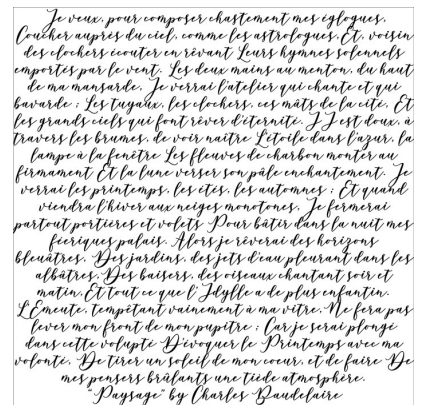 Je veux, pour composer chastement mes églogues,
Coucher auprès du ciel, comme les astrologues, Et, voisin
des clochers écouter en rêvant Leurs hymnes solennels
emportés par le vent. Les deux mains au menton, du haut
de ma mansarde, Je verrai l'atelier qui chante et qui
bavarde ; Les tuyaux, les clochers, ces mâts de la cité, Et
les grands ciels qui font rêver d'éternité. Il est doux, à
travers les brumes, de voir naître L'étoile dans l'azur, la
lampe à la fenêtre Les fleuves de charbon monter au
firmament Et la lune verser son pâle enchantement. Je
verrai les printemps, les étés, les automnes ; Et quand
viendra l'hiver aux neiges monotones, Je fermerai
partout portières et volets Pour bâtir dans la nuit mes
féeriques palais. Alors je rêverai des horizons
bleuâtres, Des jardins, des jets d'eau pleurant dans les
albâtres, Des baisers, des oiseaux chantant soir et
matin, Et tout ce que l'Idylle a de plus enfantin.
L'Émeute, tempêtant vainement à ma vitre, Ne fera pas
lever mon front de mon pupitre ; Car je serai plongé
dans cette volupté D'évoquer le Printemps avec ma
volonté, De tirer un soleil de mon coeur, et de faire De
mes pensers brûlants une tiède atmosphère.
"Paysage" by Charles Baudelaire